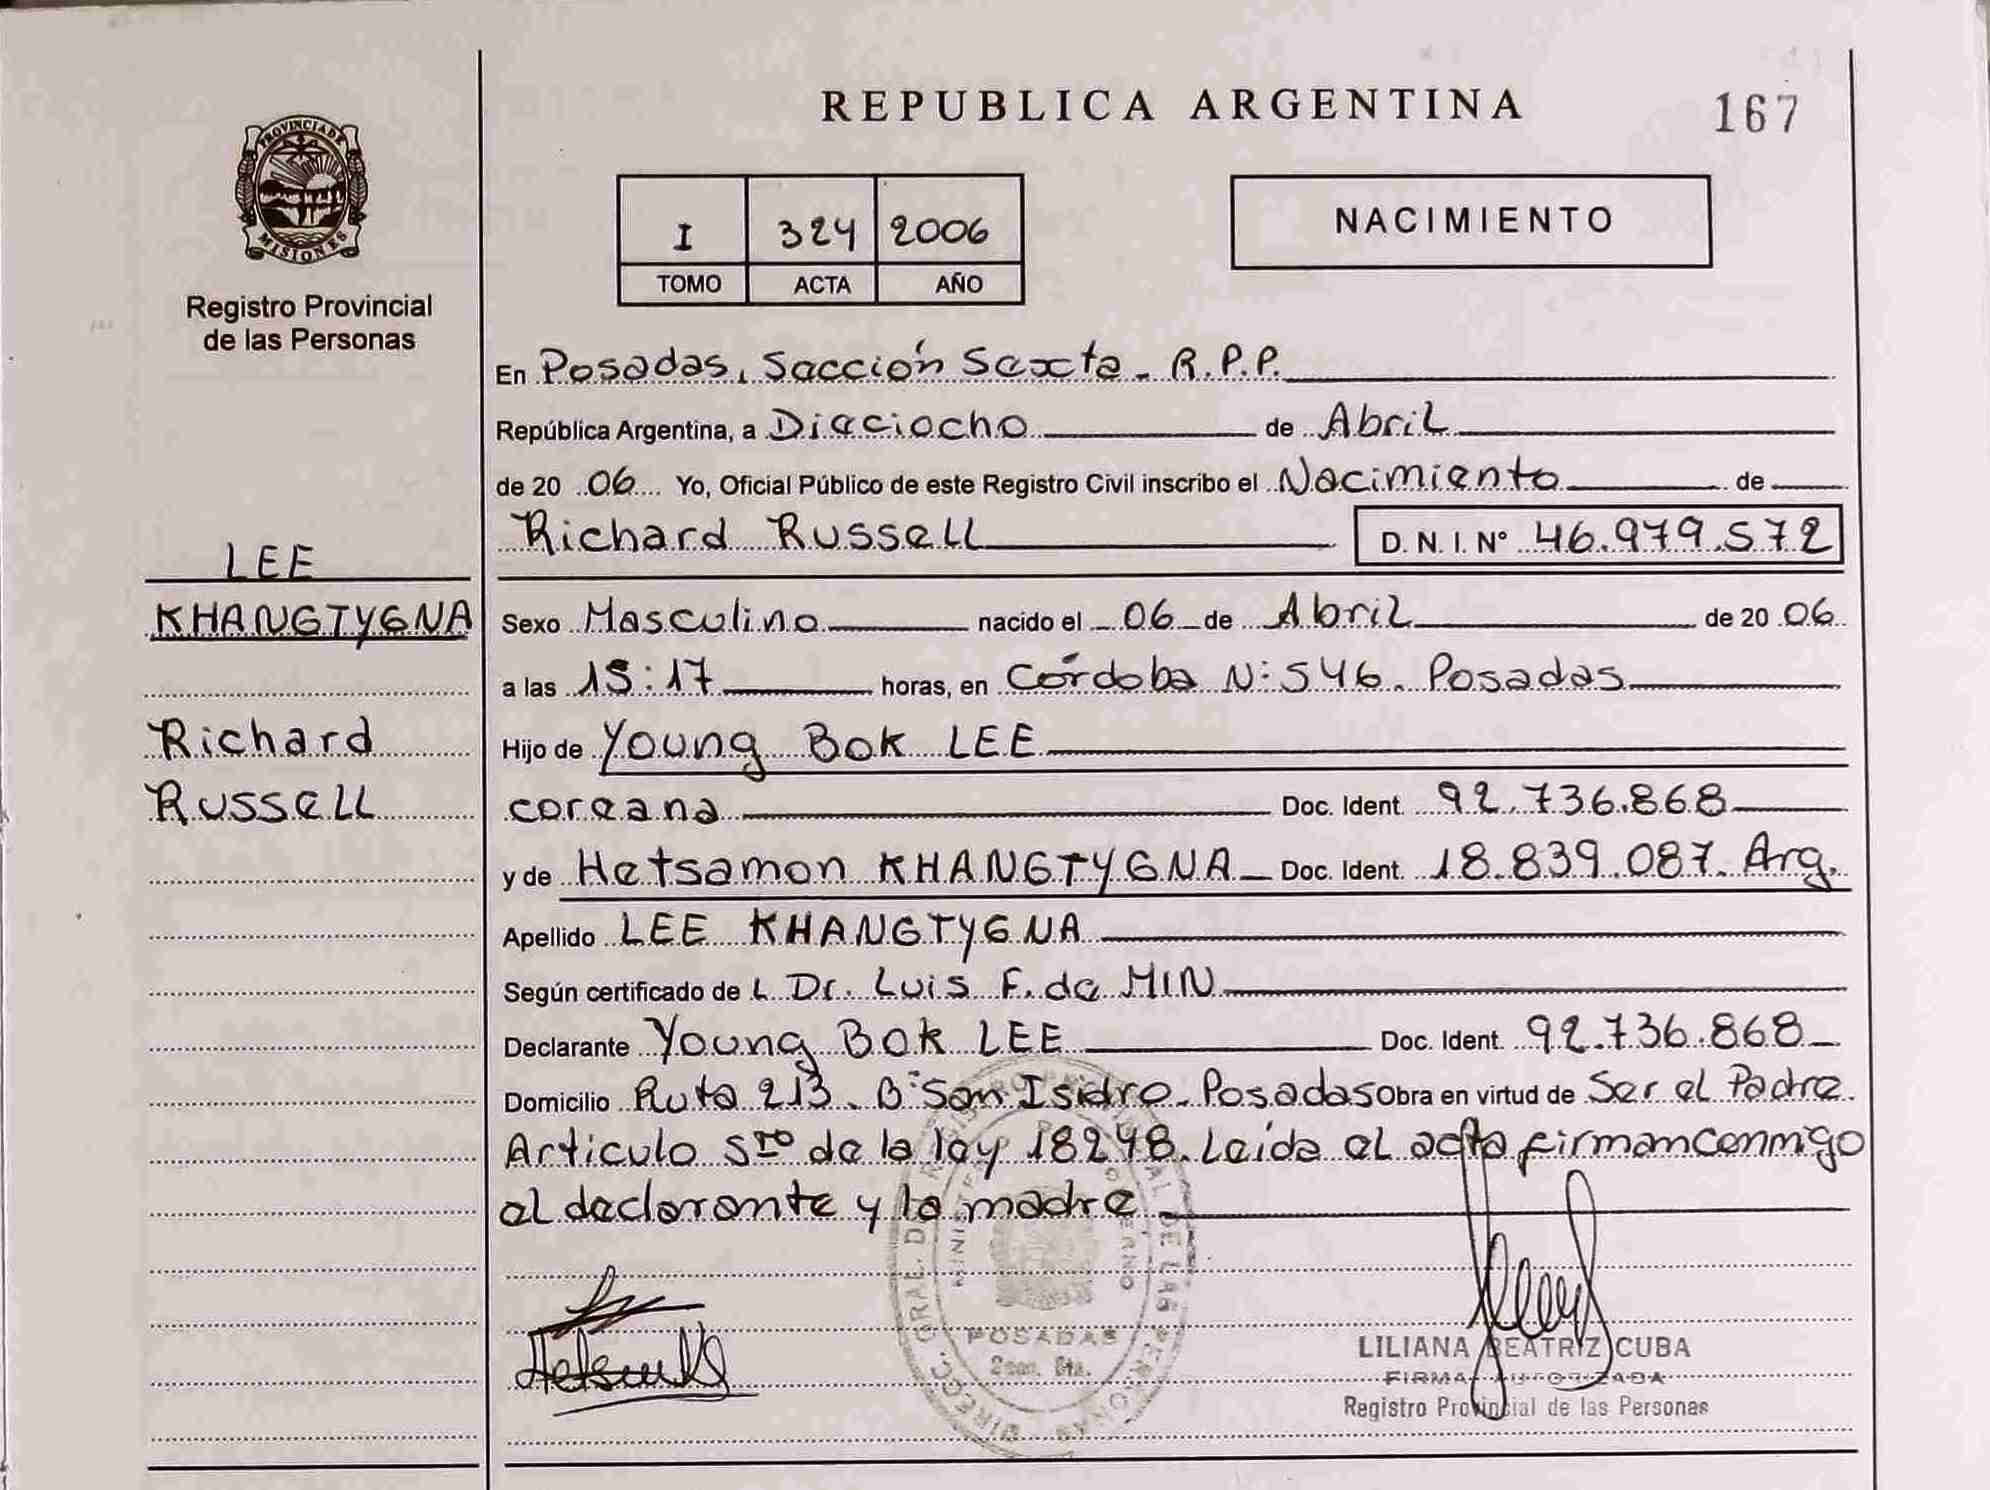 REPUBLICA ARGENTINA
167
PROVINCIA DE
MISIONES
Registro Provincial
de las Personas
I 324 2006
TOMO ACTA AÑO
NACIMIENTO
En Posadas, Sección Sexta - R.P.P.
República Argentina, a Dieciocho de Abril
de 20 06 Yo, Oficial Público de este Registro Civil inscribo el Nacimiento de
Richard Russell D. N. I. Nº 46.979.572
LEE
KHANGTYGNA
Richard
Russell
Sexo Masculino nacido el 06 de Abril de 20 06
a las 15:17 horas, en Córdoba Nº 546. Posadas
Hijo de Young Bok LEE
coreana Doc. Ident. 92.736.868
y de Hetsamon KHANGTYGNA Doc. Ident. 18.839.087. Arg.
Apellido LEE KHANGTYGNA
Según certificado de L Dr. Luis F. de MIN
Declarante Young Bok LEE Doc. Ident. 92.736.868
Domicilio Ruta 213. Bº San Isidro. Posadas Obra en virtud de Ser el Padre.
Articulo 5to de la ley 18248. Leída el acta firman conmigo
el declarante y la madre
POSADAS
LILIANA BEATRIZ CUBA
FIRMA AUTORIZADA
Registro Provincial de las Personas